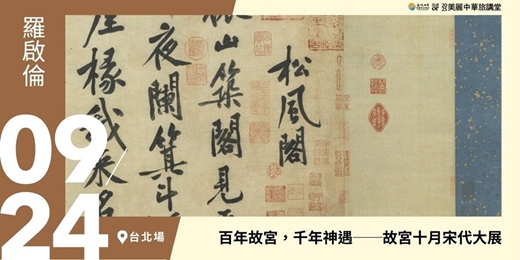 美麗中華旅講堂
羅啟倫
松風閣
山築閣見
夜闌箕斗
椽我來
09/24
台北場
百年故宮，千年神遇──故宮十月宋代大展